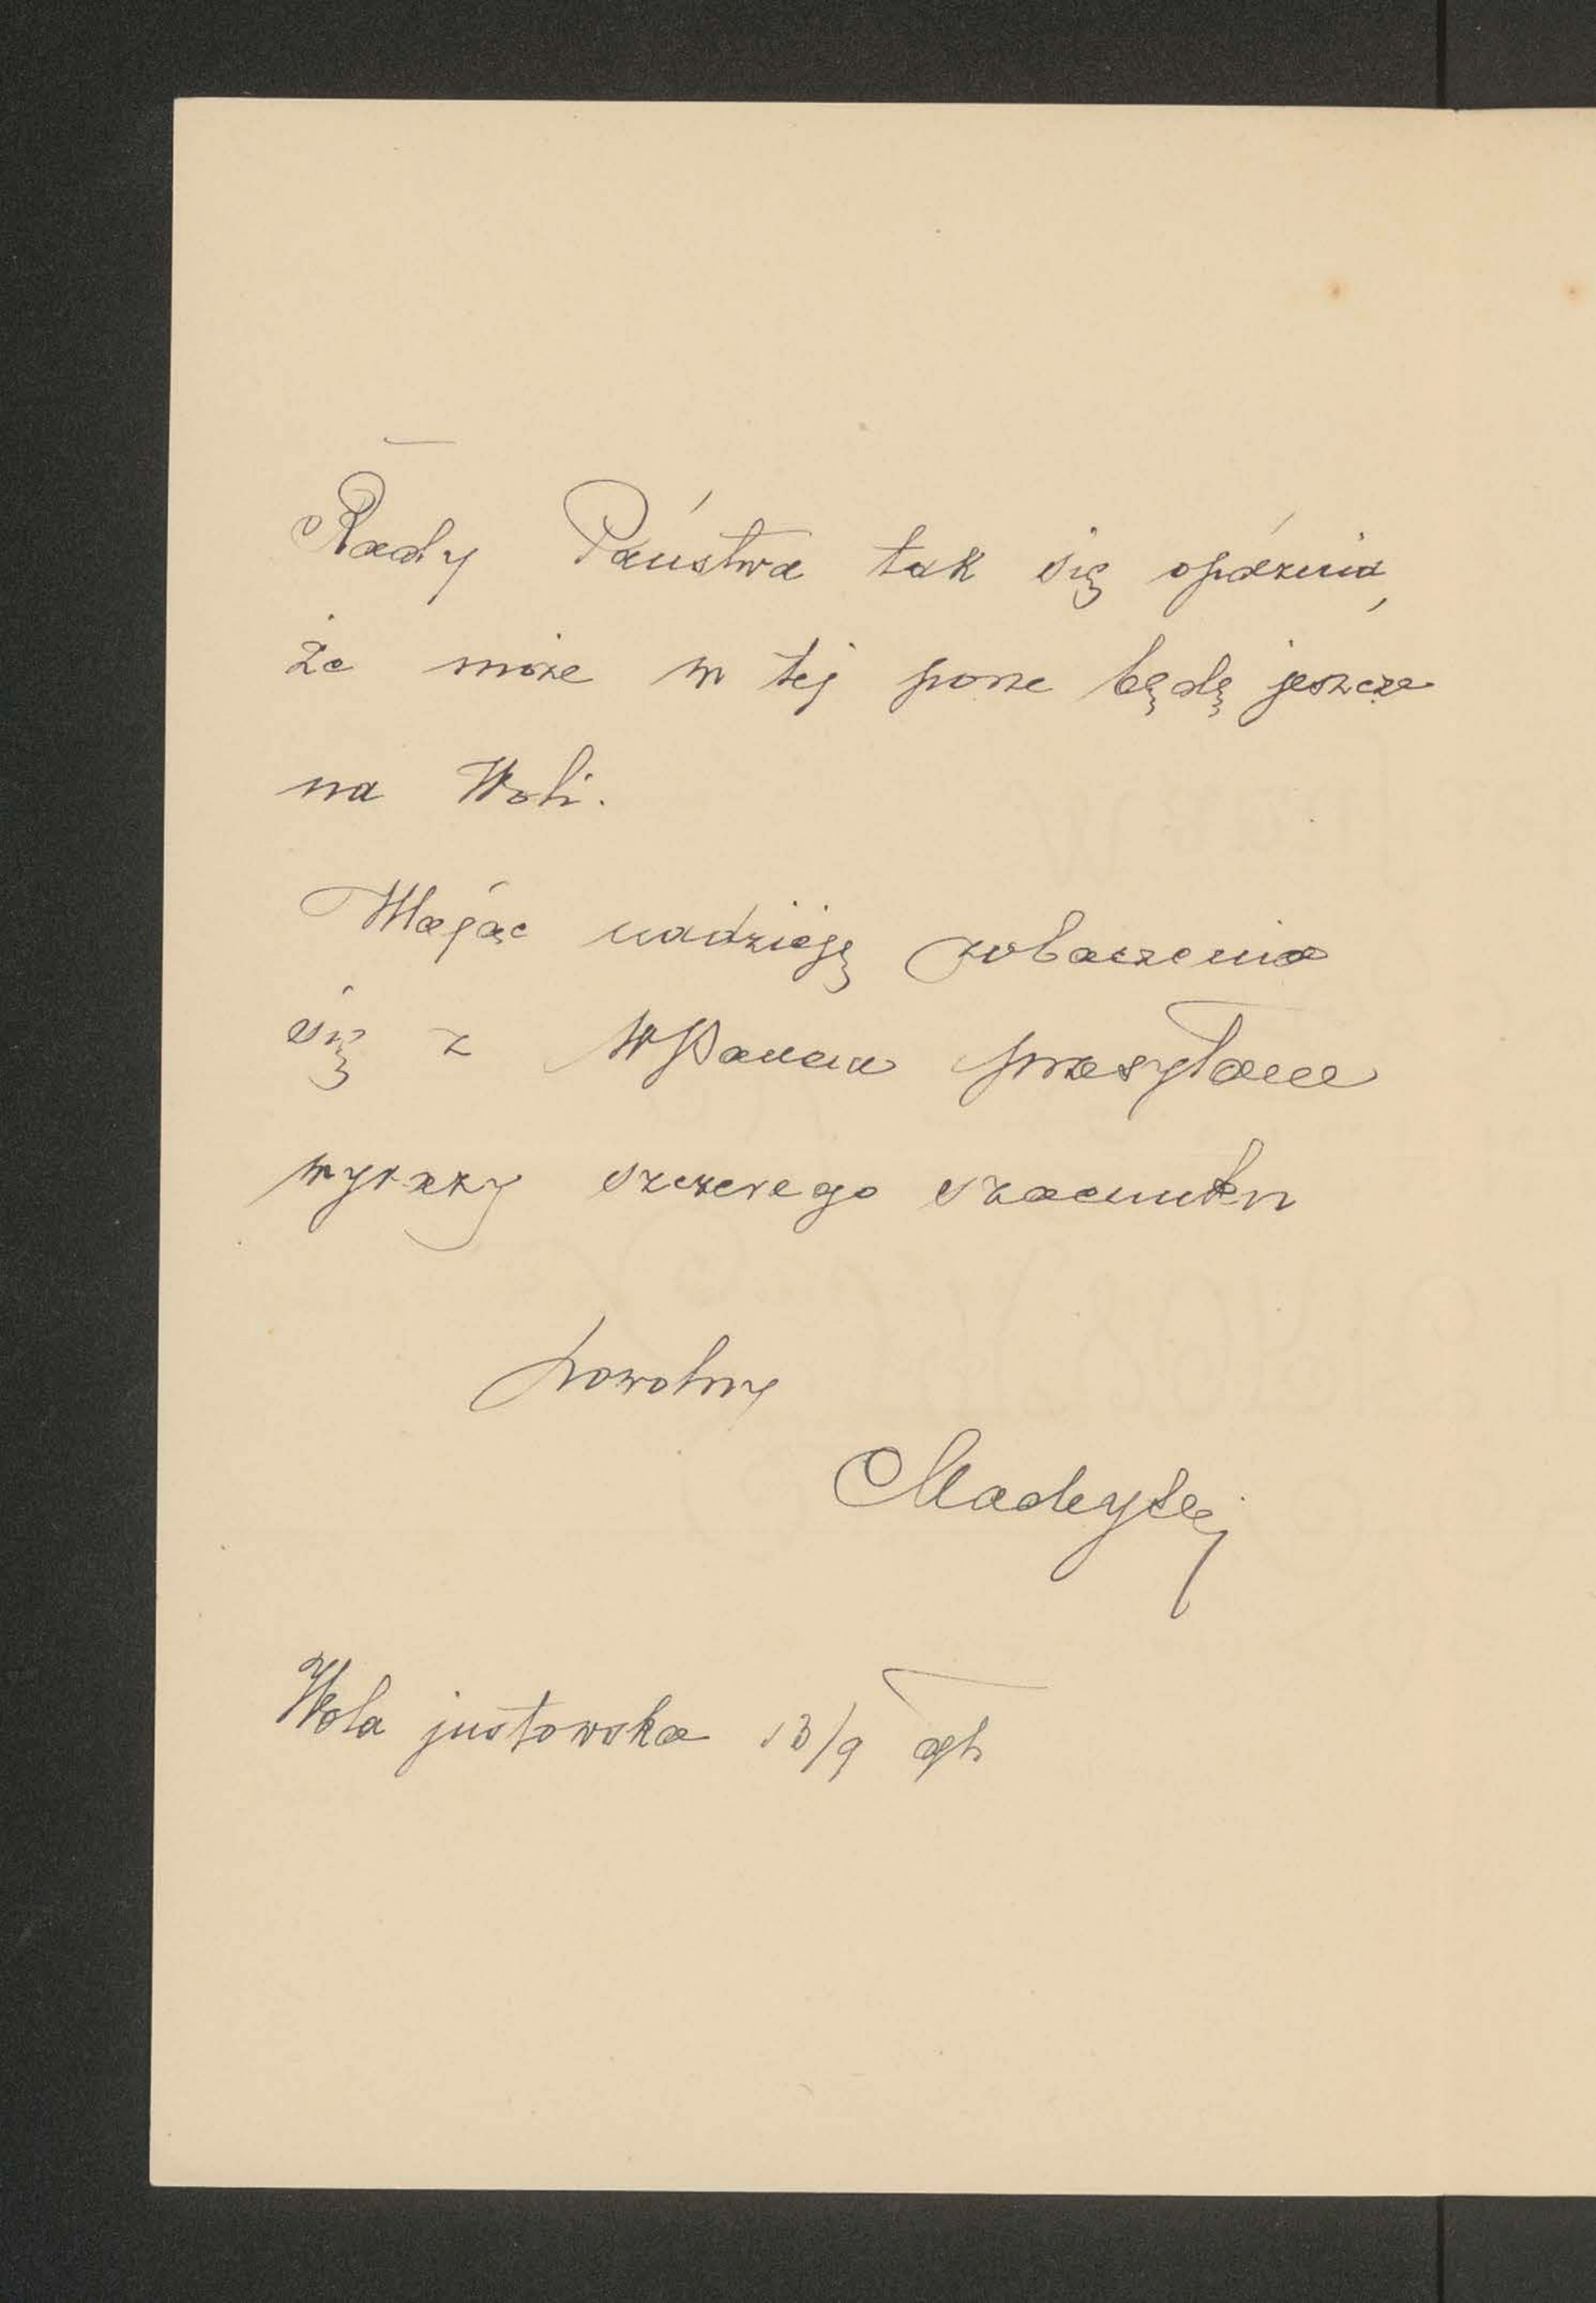 Rady Państwa tak się opóźnia,
że może w tej porze będę jeszcze
na Woli.
Mając nadzieję zobaczenia
się z WPanem przesyłam
wyrazy szczerego szacunku
powolny
Madeyski
Wola justowska 13/9